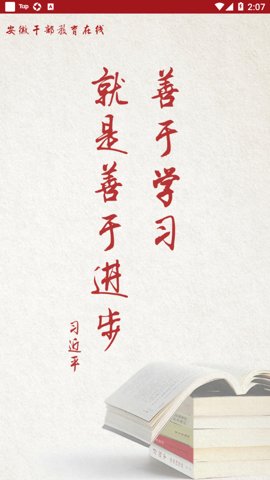 Top A 2:07
安徽干部教育在线
善于学习
就是善于进步
习近平